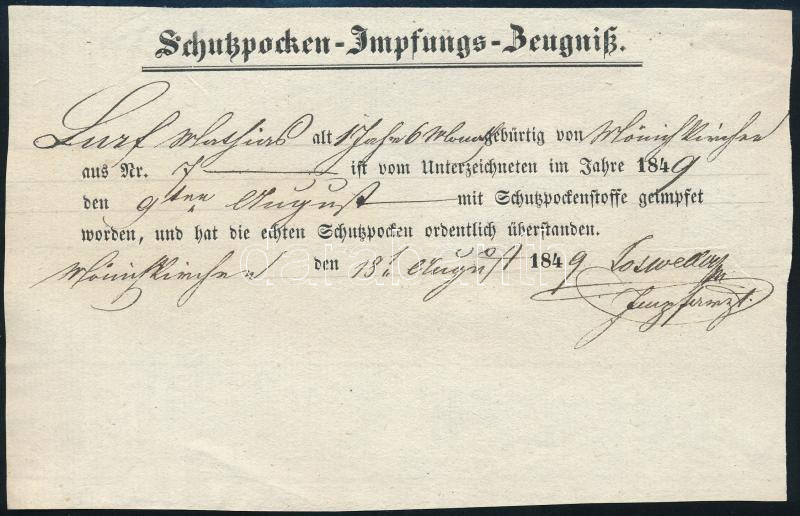 Schutzpocken-Impfungs-Zeugniß.
Lurf Mathias alt 1 Jahr 6 Monat gebürtig von Mönichkirchen
aus Nr. 7 ist vom Unterzeichneten im Jahre 1849
den 9ten August mit Schutzpockenstoffe geimpft
worden, und hat die echten Schutzpocken ordentlich überstanden.
Mönichkirchen den 18t August 1849
Impfarzt.